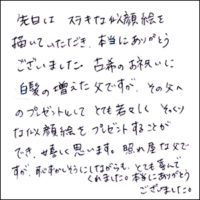 先日は ステキな似顔絵を
描いていただき、本当にありがとう
ございました。古希のお祝いに
白髪の増えた父ですが、その父へ
のプレゼントとして とても若々しく そっくり
な似顔絵をプレゼントすることが
でき、嬉しく思います。照れ屋な父で
すが、恥ずかしそうにしながらも、とても喜んで
くれました。本当にありがとう
ございました。